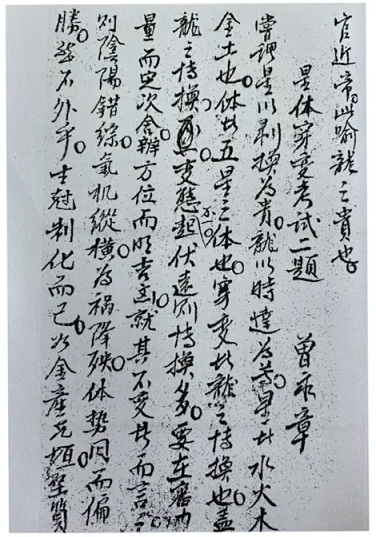 官近帝此喻龍之貴也
星体穿變考试二題 曾永章
嘗謂星以剥換為貴龍以時達為尊星者水火木
金土也体者五星之体也穿變者龍之传換也盖
龍之传換變態不一起伏遠則传換多要在審力
量而定次舍辨方位而明吉凶就其不變者而言之
则陰陽錯綜氣机縱横為祸降殃体勢同而偏
勝然不外乎生尅制化而已以金産堅質